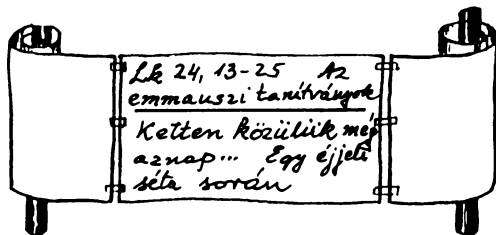 Lk 24, 13-25 Az
emmauszi tanítványok
Ketten közülük még
aznap... Egy éjjeli
séta során